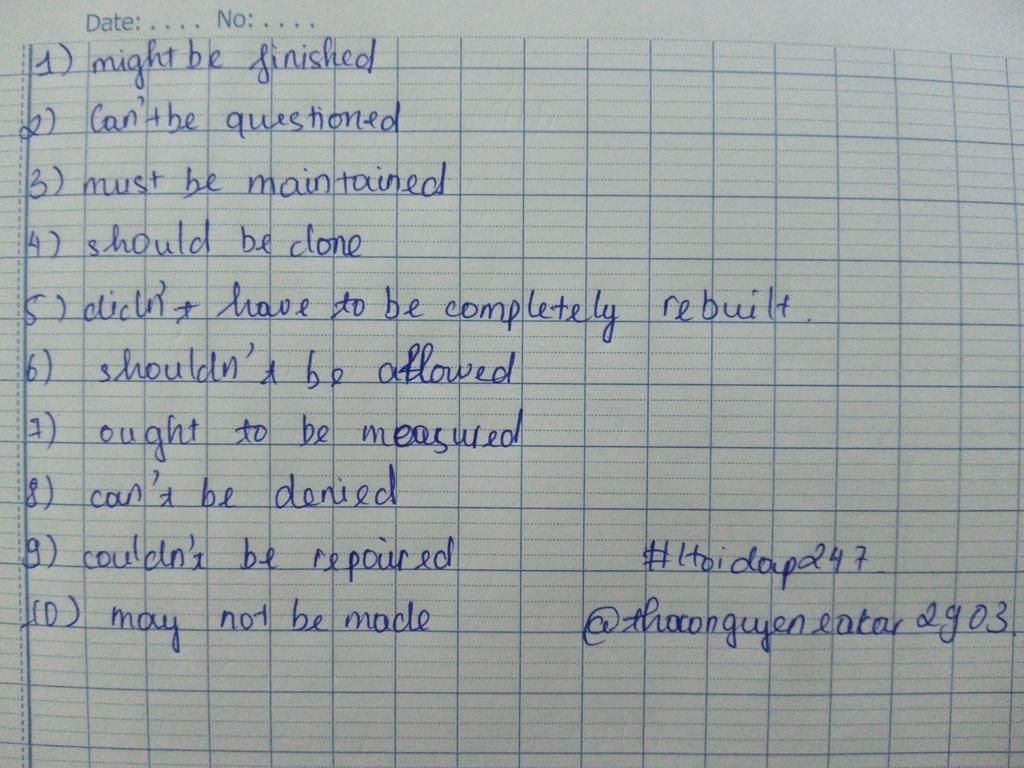 Date: .... No: ....
1) might be finished
2) Can't be questioned
3) must be maintained
4) should be done
5) didn't have to be completely rebuilt.
6) shouldn't be allowed
7) ought to be measured
8) can't be denied
9) couldn't be repaired #Hoidap247
10) may not be made